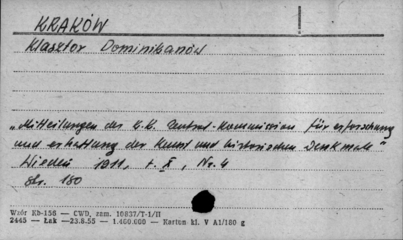 KRAKÓW
Klasztor Dominikanów
"Mitteilungen der k.k. Central-Kommission für erforschung
und erhaltung der Kunst und historischen Denkmale"
Wiedeń 1911, t. X, Nr. 4
Str. 180
Wzór Kb-156 — CWD, zam. 10837/T-1/II
2445 — Łak — 23.8.55 — 1.400.000 — Karton kl. V A1/180 g